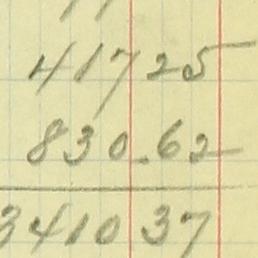 417 25
830.62
341037